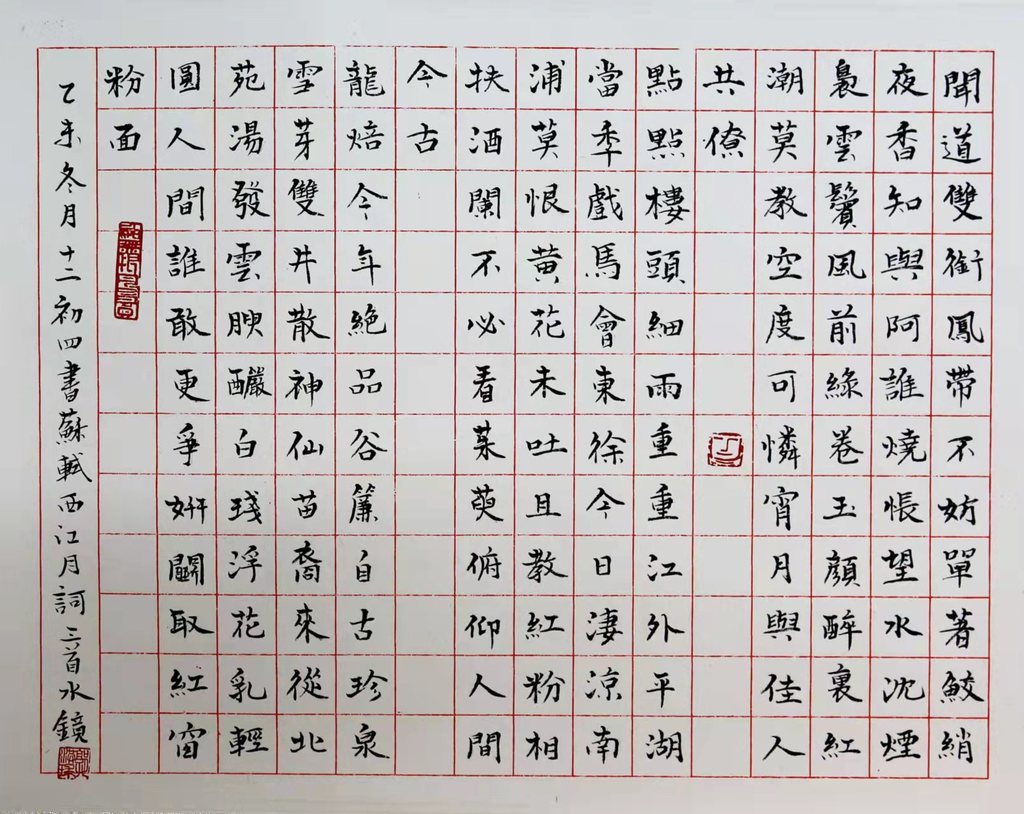 聞道雙銜鳳帶不妨單著鮫綃
夜香知與阿誰燒悵望水沈煙
裊雲鬢風前綠卷玉顏醉裏紅
潮莫教空度可憐宵月與佳人
共僚
點點樓頭細雨重重江外平湖
當秊戲馬會東徐今日淒涼南
浦莫恨黃花未吐且教紅粉相
扶酒闌不必看茱萸俯仰人間
今古
龍焙今年絕品谷簾自古珍泉
雪芽雙井散神仙苗裔來從北
苑湯發雲腴釅白琖浮花乳輕
圓人間誰敢更爭姸鬭取紅窗
粉面
乙未冬月十二初四書蘇軾西江月詞三首水鏡